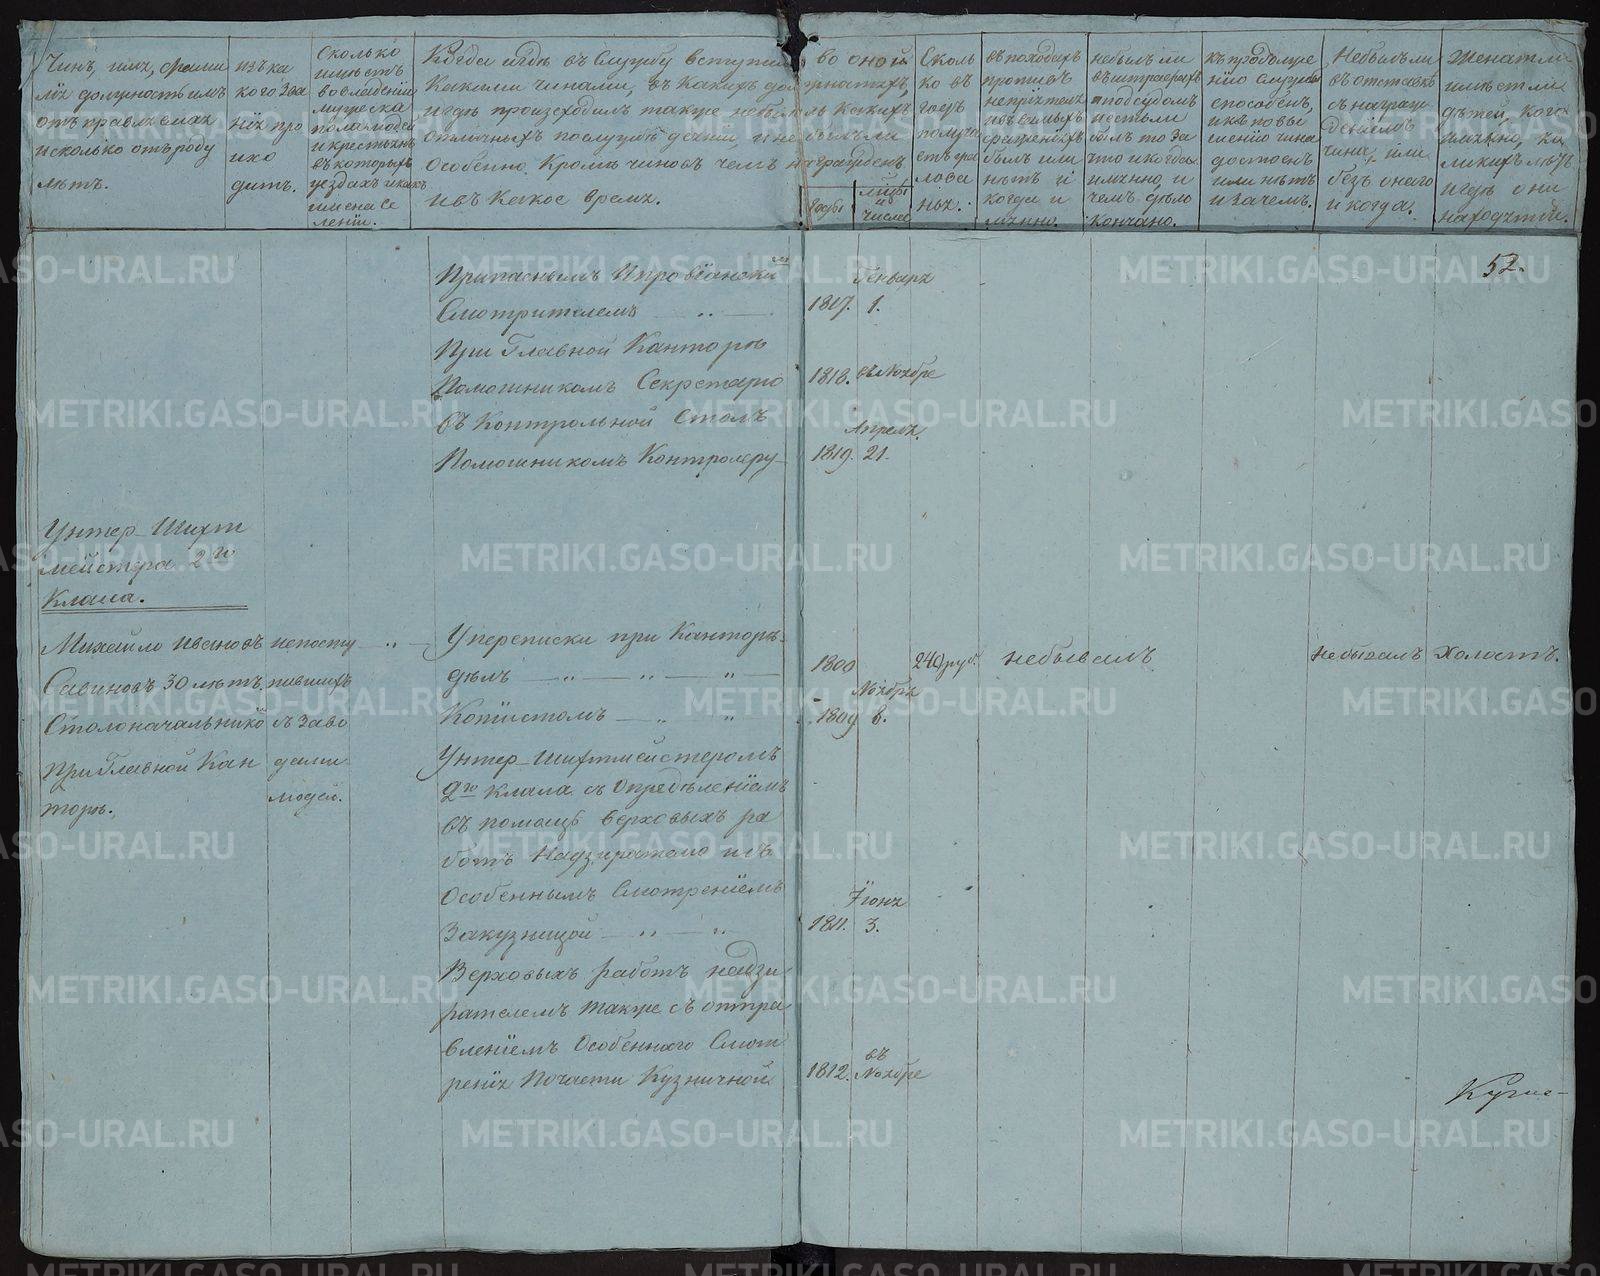 Чинъ, имя, фами
лія должность имъ
отправляемая
и сколько отъ роду
летъ.
изъ ка
кого зва
нія про
ихо
дитъ.
Сколько
имеетъ
во владеніи
мужеска
пола людей
и крестьянъ
въ которыхъ
уездахъ и какъ
имена се
леніи.
Когда и где въ службу вступилъ во оной
какими чинами, въ какихъ должностяхъ,
и где произходилъ также небыло ль какихъ
отличныхъ по службе деяній, и не былъ ли
особенно кроме чиновъ чемъ награжденъ
и въ какое время.
Годы
месяцы
и
числа
Сколь
ко въ
годъ
получа
етъ жа
лова
нья.
въ походахъ
противъ
непріятеля
и въ самыхъ
сраженіяхъ
былъ или
нетъ и
когда и
мянно.
небылъ ли
въ штрафахъ
и подсудомъ
и естьли
былъ то за
что и когда
имянно, и
чемъ дело
кончано.
къ продолже
нію службы
способенъ,
и къ повы
шенію чина
достоенъ
или нетъ
и зачемъ.
Небылъ ли
въ отставке
съ награж
деніемъ
чина, или
безъ онаго
и когда.
Женатъ ли
имеетъ ли
детей, кого
имянно, ка
ликихъ летъ
и где они
находятся.
52.
Припаснымъ и провіанскимъ
Смотрителемъ
1817.
Генваря
1.
При Главной Канторе
Помошникомъ Секретарю
1818. въ Ноябре
въ Контрольной Столъ
Помошникомъ Контролеру
1819.
Апреля
21.
Унтер-Шихт
мейстера 2го
Класа.
Михайло Ивановъ
Савиновъ 30 летъ
Столоначальнико
При Главной Кан
торе.
непосту
пившихъ
съ Заво
дами
людей.
У переписки при Канторе
делъ
1800
240 руб.
небывалъ
Небывалъ
Холостъ.
Копіистомъ
1809
Ноября
6.
Унтер-Шихтмейстеромъ
2го класа съ определеніемъ
въ помощь верховыхъ ра
ботъ Надзирателю и съ
Особеннымъ Смотреніемъ
За кузницой
1811.
Іюня
3.
Верховыхъ работъ надзи
рателемъ также съ отпра
вленіемъ Особеннаго Смот
ренія Почасти Кузничной
1812.
въ
Ноябре
METRIKI.GASO-URAL.RU